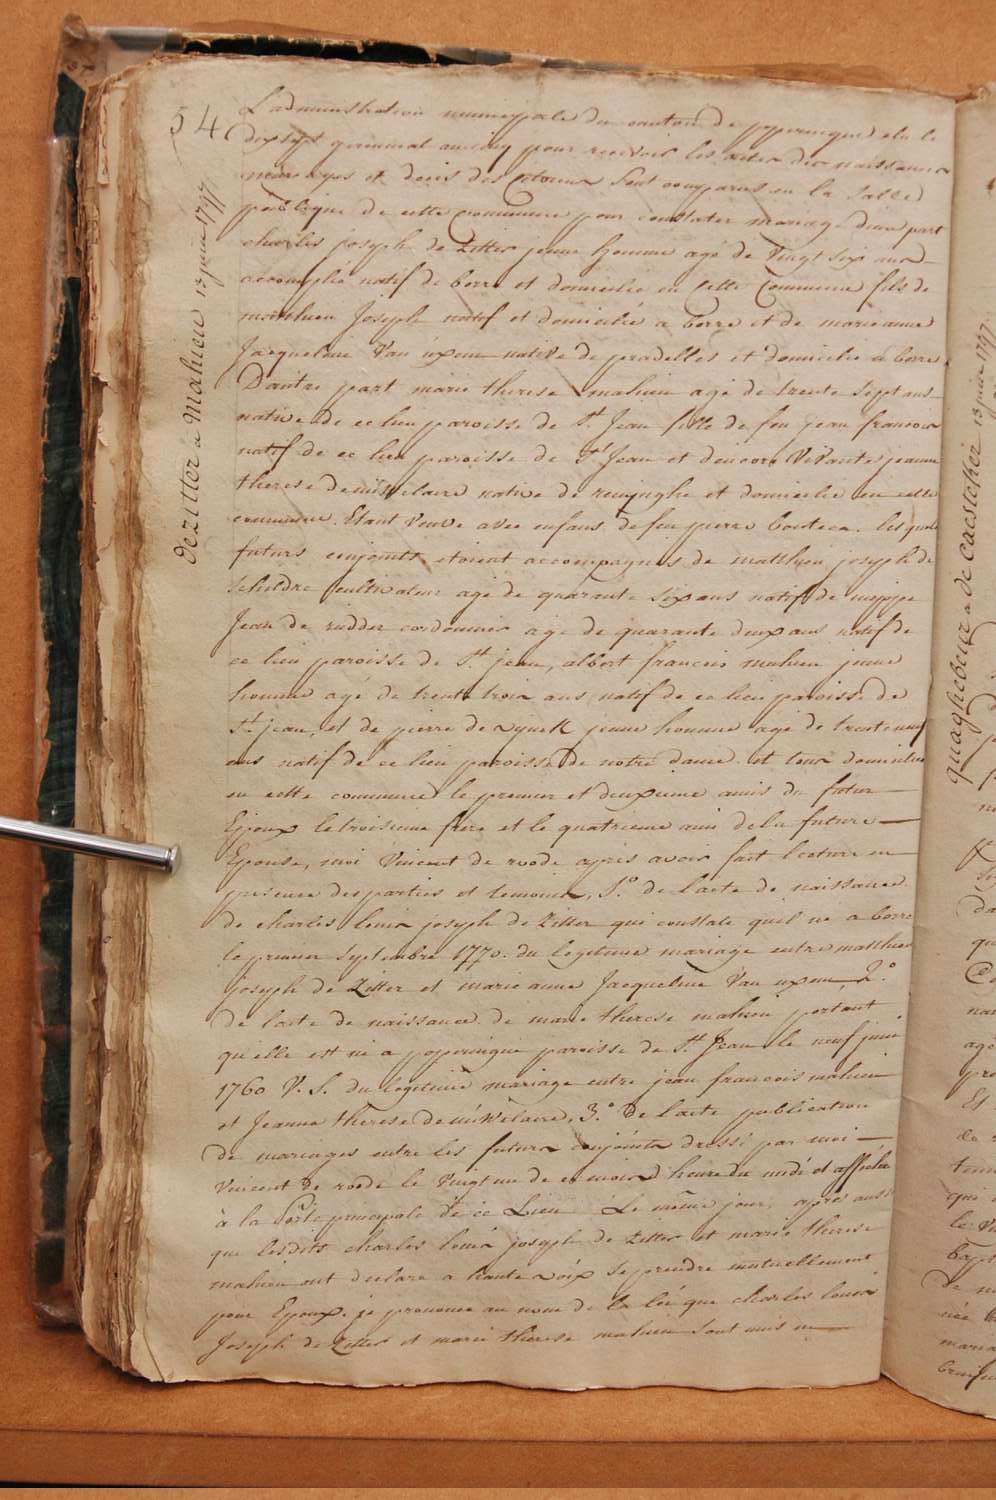 54
dezitter a Mahieu 13 juin 1797
L'administration municipale du canton de poperingue elu le
dixsept germinal an cinq pour recevoir les actes des naissances
mariages et decès des Citoiens sont comparus en la Salle
publique de cette Commune pour constater mariage d'une part
charles joseph de Zitter jeune homme agé de Vingt six ans
accomplis natif de borre et domicilié en cette Commune fils de
matthieu Joseph natif et domicilié a borre et de marie anne
Jacqueline Van uxem native de pradelles et domicilie a borre
D'autre part marie therese mahieu agé de trente sept ans
native de ce lieu paroisse de St Jean fille de feu jean francois
natif de ce lieu paroisse de St Jean et d'encore Vivante jeanne
therese demuwelaire native de reninghe et domicilie en cette
commune. Etant veuve avec enfans de feu pierre bouteca. lesquels
futurs conjoints etoient accompagnés de matthieu joseph de
schildre cultivateur agé de quarante six ans natif de
Jean de ridder cordonnier age de quarante deux ans natif de
ce lieu paroisse de St jean, albert francois mahieu jeune
homme agé de trente trois ans natif de ce lieu paroisse de
St jean, et de pierre de rynck jeune homme agé de trente neuf
ans natif de ce lieu paroisse de notre dame. et tous domicilies
en cette commune le premier et deuxieme amis du futur
Epoux le troisieme frere et le quatrieme ami de la future
Epouse, moi Vincent de roode apris avoir fait lecture en
presence des parties et temoins, 1.° de l'acte de naissance
de charles louis joseph de Zitter qui constate quil né a borre
le premier septembre 1770. du legitime mariage entre matthieu
joseph de Zitter et marie anne Jacqueline Van uxem, 2.°
de l'acte de naissance de marie therese mahieu portant
qu'elle est né a poperingue paroisse de St Jean le neuf juin
1760 V. S. du legitime mariage entre jean francois mahieu
et Jeanne therese demuwelaire, 3.° De l'acte publication
de mariages entre les futurs conjoints dressé par moi
Vincent de roode le Vingt un de ce mois d'heure du midi et affichée
à la Porte principale de ce Lieu Le même jour, aprè aussi
que lesdits charles louis joseph de Zitter et marie therese
mahieu ont declaré a haute voix se prendre mutuellement
pour Epoux. je prononce au nom de la loi que charles louis
Joseph de Zitter et marie therese mahieu sont unis en
quaghebeur a de Caesteker 13 juin 1797